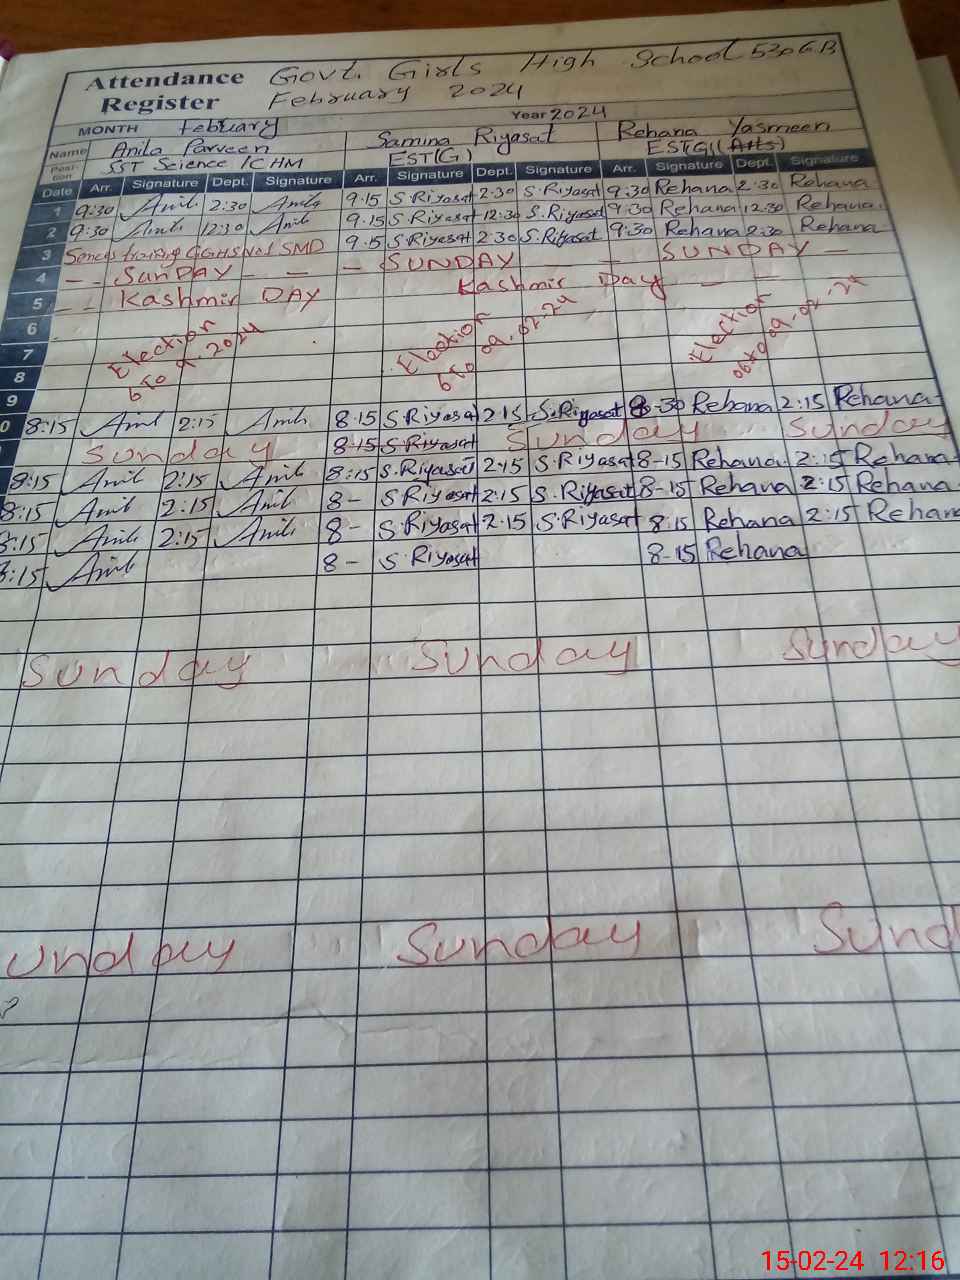 Attendance Register Govt. Girls High School 530 G.B
February 2024
Year 2024
MONTH February
Name Anila Parveen Samina Riyasat Rehana Yasmeen
Posi-tion SST Science / CHM EST(G) EST(G)
Date Arr. Signature Dept. Signature Arr. Signature Dept. Signature Arr. Signature Dept. Signature
1 9:30 Anil 2:30 Anila 9.15 S Riyasat 2:30 S.Riyasat 9:30 Rehana 2:30 Rehana
2 9:30 Anil 12:30 Anil 9.15 S.Riyasat 12:30 S.Riyasat 9:30 Rehana 12.30 Rehana.
3 training SMD 9.15 S.Riyasat 2:30 S.Riyasat 9:30 Rehana 2:30 Rehana
4 - - SunDAY - - - SUNDAY - SUNDAY
5 - - Kashmir DAY Kashmir Day - -
6
7 Election 6 to 9.2.2024 Election 6 to 09.02.24 Election 06 to 09.02.24
8
9
0 8:15 Anil 2:15 Anila 8.15 S.Riyasat 2.15 S.Riyasat 8-30 Rehana 2:15 Rehana
Sunday 8-15 S.Riyasat Sunday Sunday
8:15 Anil 2:15 Anila 8:15 S.Riyasat 2:15 S.Riyasat 8-15 Rehana 2:15 Rehana
8:15 Anil 2:15 Anila 8- S.Riyasat 2:15 S.Riyasat 8-15 Rehana 2:15 Rehana
8:15 Anil 2:15 Anila 8- S.Riyasat 2.15 S.Riyasat 8:15 Rehana 2:15 Rehana
8:15 Anil 8- S.Riyasat 8-15 Rehana
Sunday Sunday Sunday
unday Sunday Sund
15-02-24 12:16